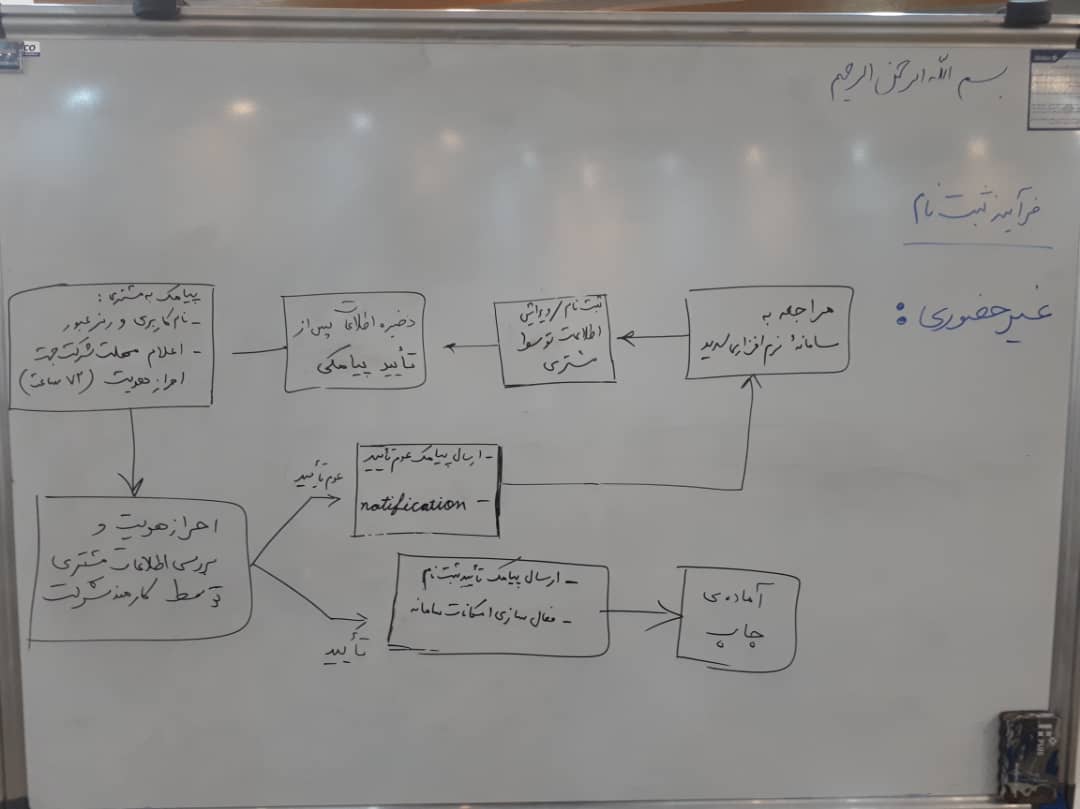 بسم الله الرحمن الرحیم
فرآیند ثبت نام
غیرحضوری:
مراجعه به
سامانهٔ نرم افزاری
ثبت نام / ویرایش
اطلاعات توسط
مشتری
ذخیره اطلاعات پس از
تأیید پیامکی
پیامک به مشتری:
- نام کاربری و رمز عبور
- اعلام مهلت شرکت جهت
احراز هویت (۷۲ ساعت)
احراز هویت و
بررسی اطلاعات مشتری
توسط کارمند شرکت
عدم تأیید
- ارسال پیامک عدم تأیید
- notification
تأیید
- ارسال پیامک تأیید ثبت نام
- فعال سازی امکانات سامانه
آماده‌ی
چاپ